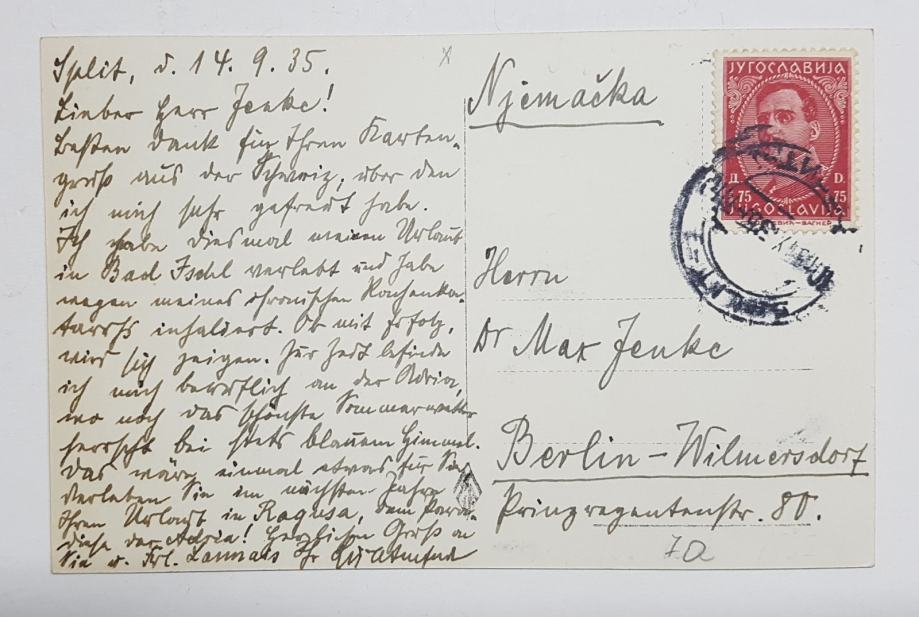 Split, d. 14. 9. 35.
Lieber Herr Jenke!
Besten Dank für Ihren Karten-
gruß aus der Schweiz, über den
ich mich sehr gefreut habe.
Ich habe diesmal meinen Urlaub
in Bad Ischl verlebt und habe
wegen meines chronischen Rachenka-
tarrhs inhaliert. Ob mit Erfolg,
wird sich zeigen. Zur Zeit befinde
ich mich beruflich an der Adria,
wo noch das schönste Sommerwetter
herrscht bei stets blauem Himmel.
Das wäre einmal etwas für Sie
Verleben Sie im nächsten Jahre
Ihren Urlaub in Ragusa, dem Para-
diese der Adria! Herzlichen Gruß an
Sie u. Frl. Ihr
Njemačka
ЈУГОСЛАВИЈА
Д. D.
75 75
JUGOSLAVIJA
Herrn
Dr Max Jenke
Berlin-Wilmersdorf
Prinzregentenstr. 80.
70